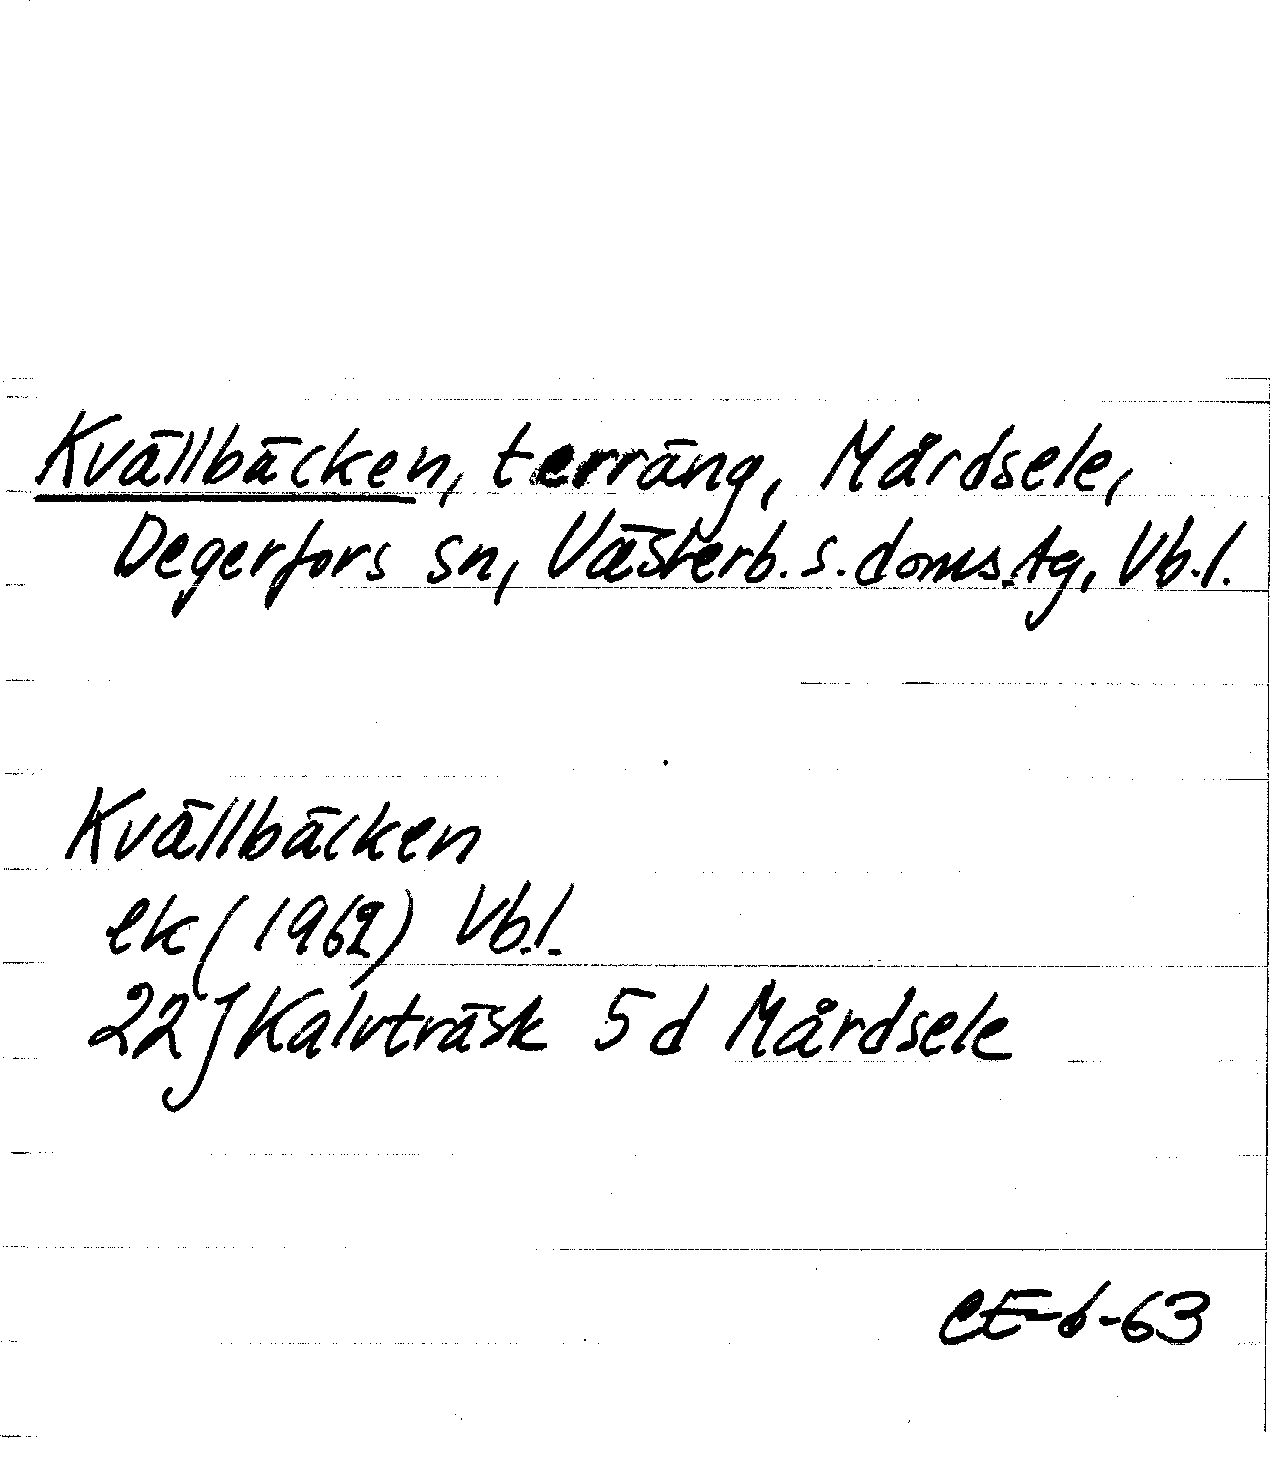 Kvällbäcken, terräng, Mårdsele,
Degerfors sn, Västerb. s. doms.tg, Vb.l.
Kvällbäcken
ek (1962) Vb.l.
22J Kalvträsk 5d Mårdsele
CE-6-63